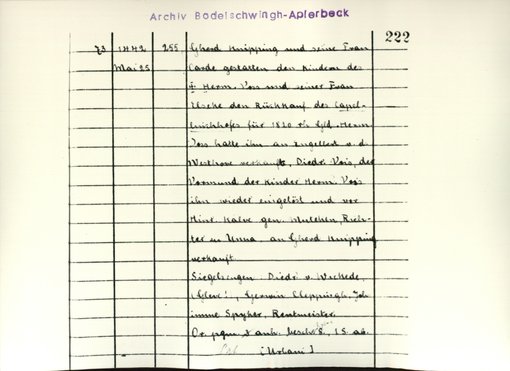 Archiv Bodelschwingh-Apferbeck
222
73 1442 255 Gherd Knipping und seine Frau
Mai 25 Carde gestatten den Kindern des
† Herm. Vois und seiner Frau
Elseke den Rückkauf des Capel-
für 1820 rh. Gld. Herm.
Vois hatte ihn an Engelbert v. d.
Westhove verkauft, Diedr. Vois, der
Vormund der Kinder Herm. Vois
ihn wieder eingelöst und vor
Hinr. Halve gen. Rich-
ter in Unna an Gherd Knipping
verkauft
Siegelzeugen: Diedr. v. Wickede,
Gerwin Cleppingh, Joh
Spyker, Rentmeister.
Or. pgm. anh. besch. S., 1 S. ab.
[Urbani]